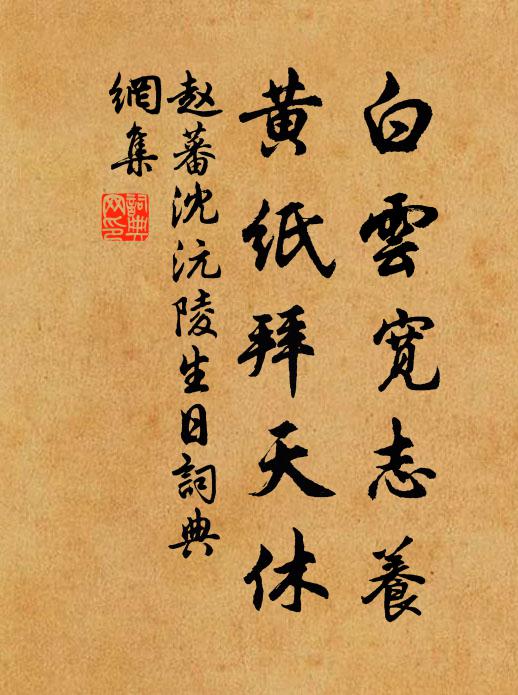 白雲寬志養
黃紙拜天休
趙蕃沈沅陵生日詞典
網集
詞典網印